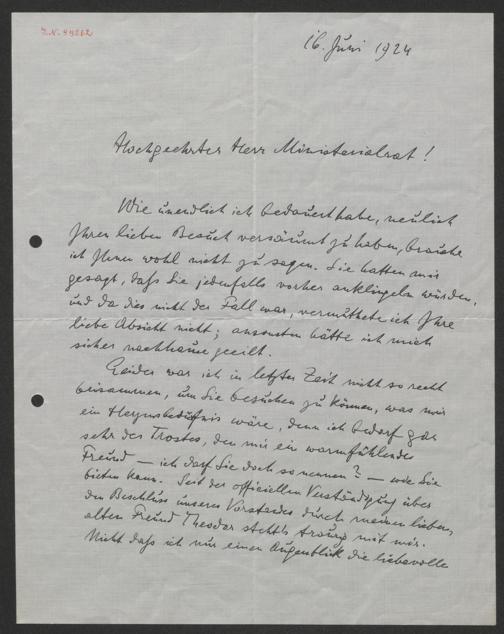 I.N. 49262
16. Juni 1924
Hochgeehrter Herr Ministerialrat!
Wie unendlich ich bedauert habe, neulich
Ihren lieben Besuch versäumt zu haben, brauche
ich Ihnen wohl nicht zu sagen. Sie hatten mir
gesagt, daß Sie jedenfalls vorher anklingeln würden,
und da dies nicht der Fall war, vermuthete ich Ihre
liebe Absicht nicht; ansonsten hätte ich mich
sicher nachhause geeilt.
Leider war ich in letzter Zeit nicht so recht
beisammen, um Sie besuchen zu können, was mir
ein Herzensbedürfnis wäre, denn ich bedarf gar
sehr des Trostes, den mir ein warmfühlender
Freund – ich darf Sie doch so nennen? – wie Sie
bieten kann. Seit der officiellen Verständigung über
den Beschluss unseres Vorstandes durch meinen lieben,
alten Freund Theodor steht's traurig mit mir.
Nicht daß ich nur einen Augenblick die liebevolle